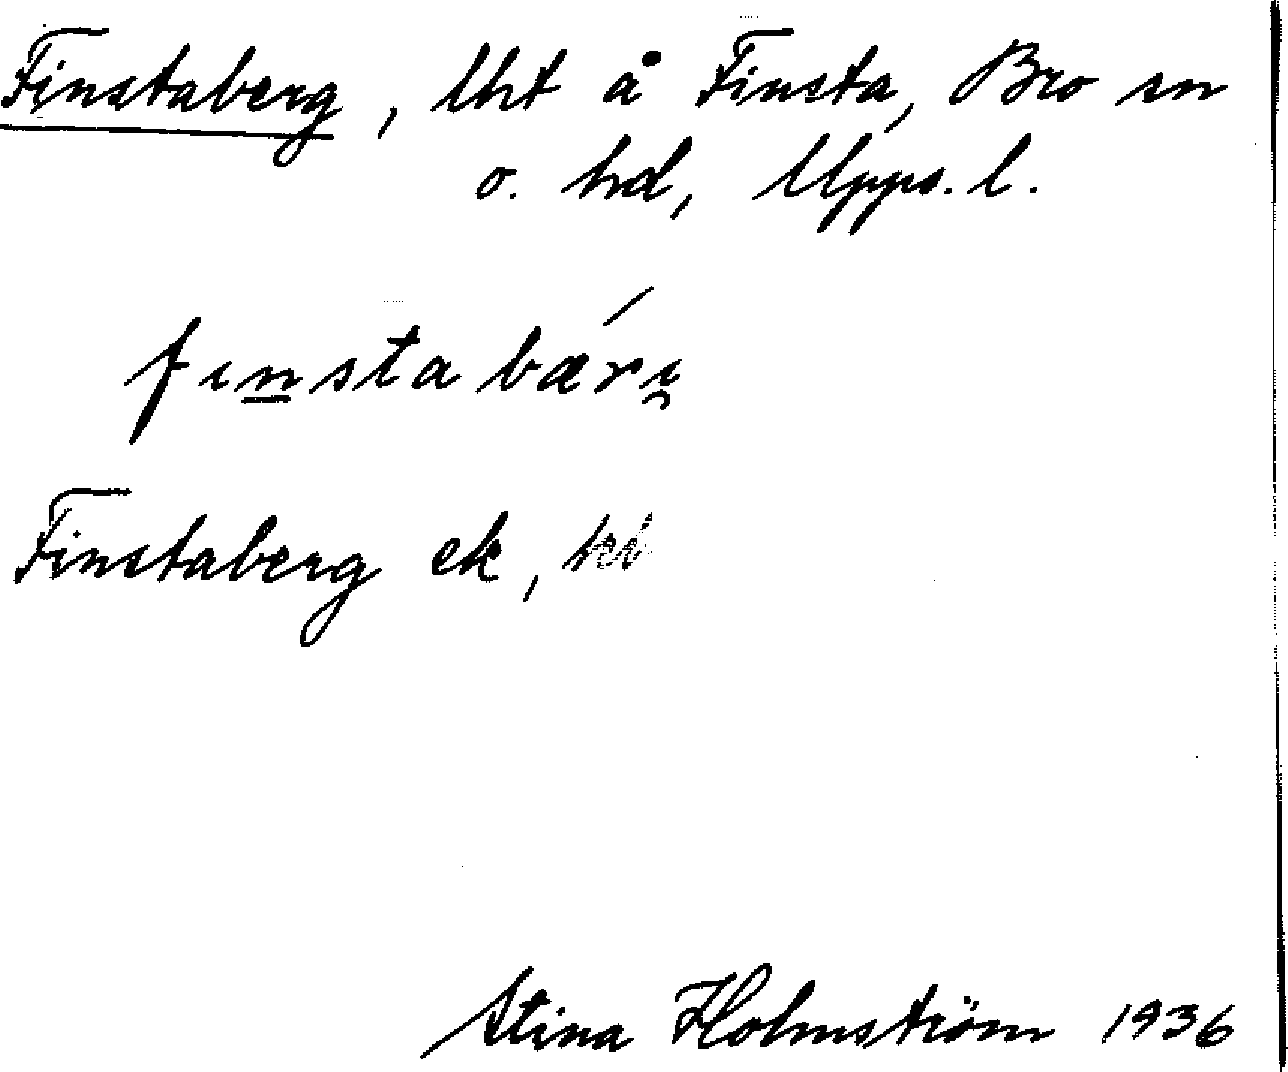 Finstaberg, lht å Finsta, Bro sn
o. hd, Upps. l.
fınstabærı
Finstaberg ek,
Stina Holmström 1936